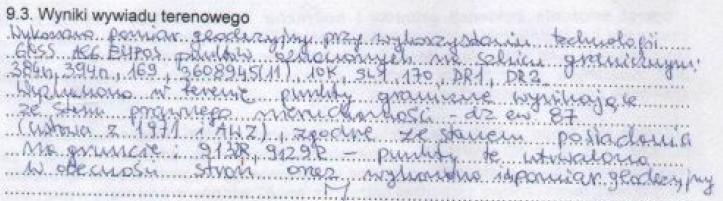 9.3. Wyniki wywiadu terenowego
Wykonano pomiar geodezyjny przy wykorzystaniu technologii
GNSS ASG EUPOS punktów w szkicu granicznym:
384n, 394n, 169, 3608945(11), 10K, 170, DR1, DR2.
Wyznaczono w terenie punkty graniczne wynikające
ze stanu prawnego nieruchomości - dz ew. 87
(ustawa z 1971 i AWZ), zgodne ze stanem posiadania
na gruncie: 9128, 9129P - punkty te utrwalono
w obecności stron oraz wykonano pomiar geodezyjny